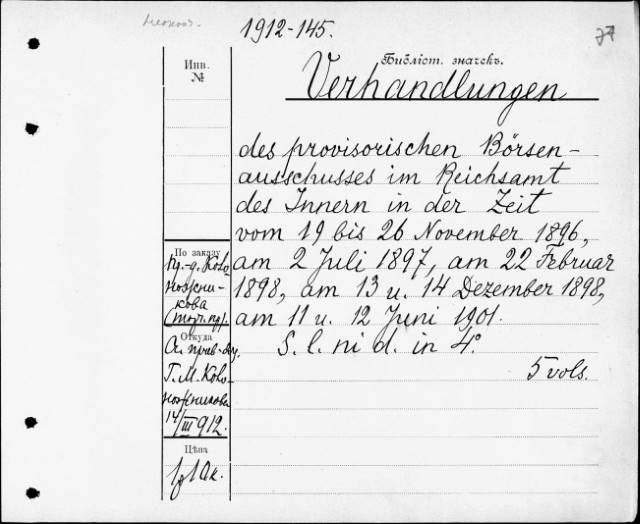 1912-145.
Библіот. значекъ.
Инв.
№
Verhandlungen
des provisorischen Börsen-
ausschusses im Reichsamt
des Innern in der Zeit
vom 19 bis 26 November 1896,
am 2 Juli 1897, am 22 Februar
1898, am 13 u. 14 Dezember 1898,
am 11 u. 12 Juni 1901.
S. l. ni d. in 4°.
5 vols.
По заказу
Пр-д. Коло
ножни-
кова
Откуда
Г. М. Коло-
ножникова
14/III 912.
Цѣна